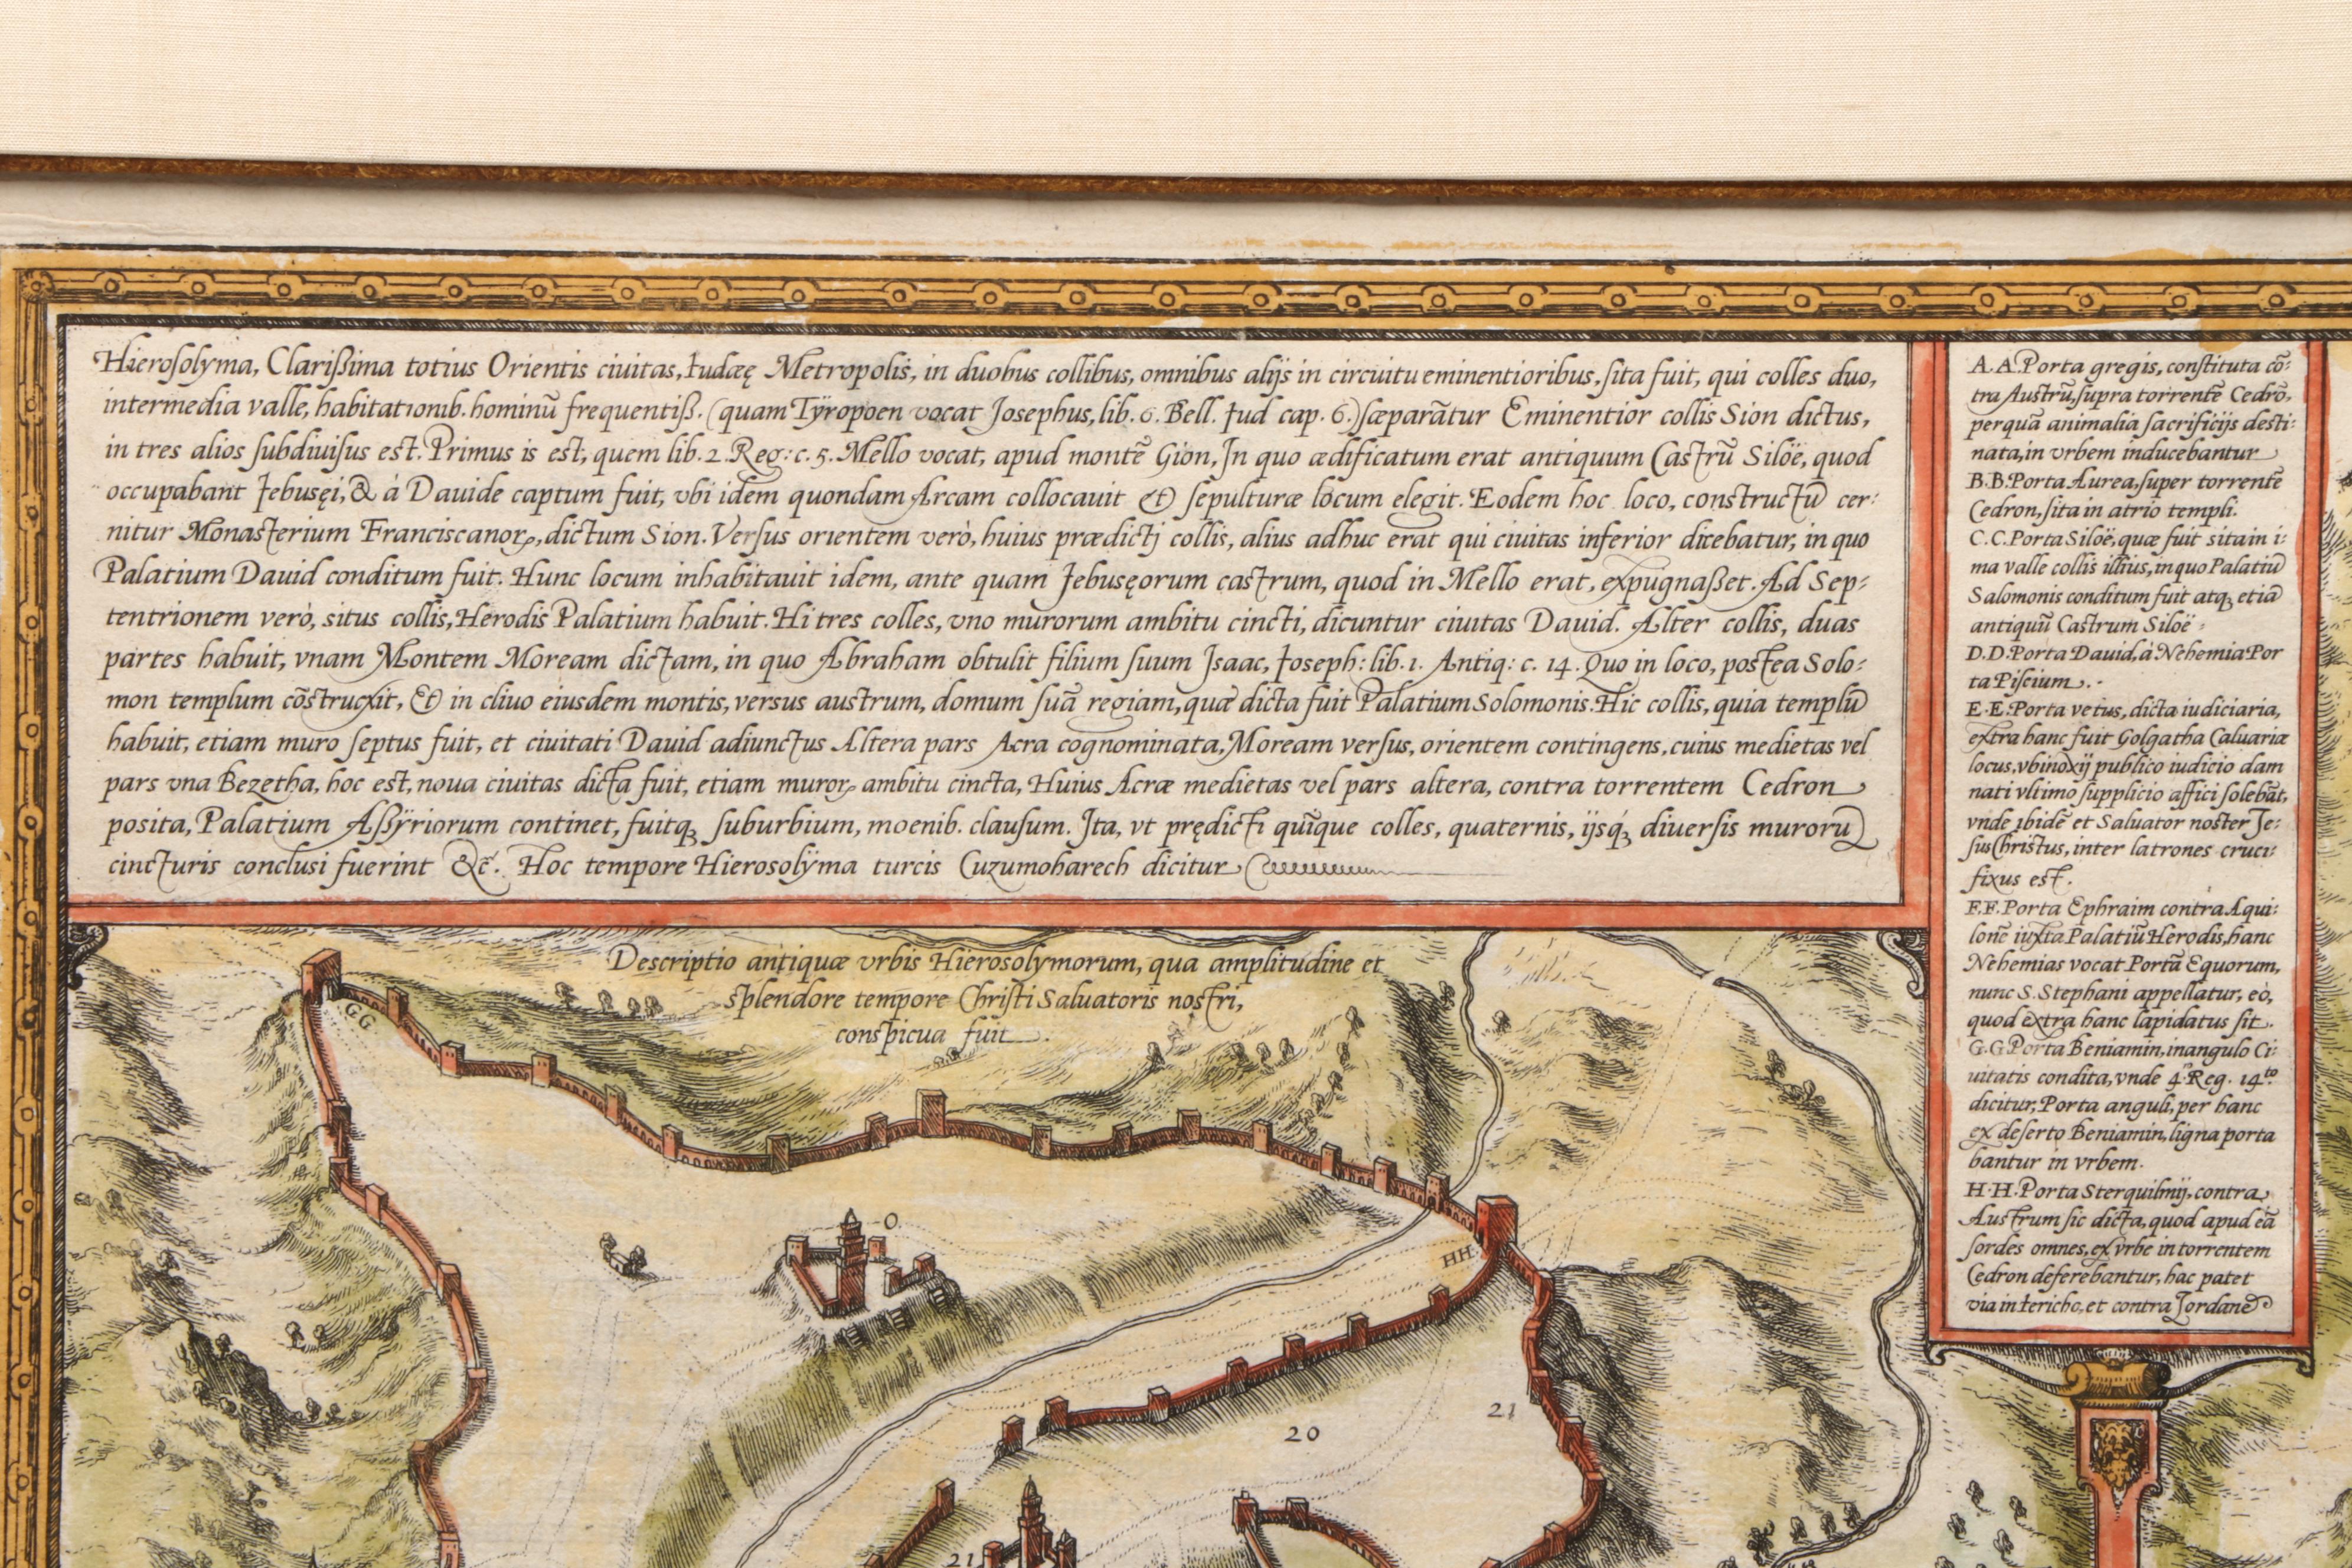 Hierosolyma, Clarißima totius Orientis ciuitas, Iudæę Metropolis, in duobus collibus, omnibus alijs in circuitu eminentioribus, sita fuit, qui colles duo,
intermedia valle, habitationib. hominū frequentiß. (quam Tÿropoen vocat Josephus, lib. 6. Bell. Iud cap. 6.) sæparātur Eminentior collis Sion dictus,
in tres alios subdiuisus est. Primus is est, quem lib. 2. Reg: c. 5. Mello vocat, apud montē Gion, In quo ædificatum erat antiquum Castrū Siloë, quod
occupabant Iebusęi, & à Dauide captum fuit, vbi idem quondam Arcam collocauit et sepulturæ locum elegit. Eodem hoc loco, constructū cer:
nitur Monasterium Franciscanoꝝ, dictum Sion. Versus orientem verò, huius prædictj collis, alius adhuc erat qui ciuitas inferior dicebatur, in quo
Palatium Dauid conditum fuit. Hunc locum inhabitauit idem, ante quam Iebusęorum castrum, quod in Mello erat, expugnaßet. Ad Sep:
tentrionem verò, situs collis, Herodis Palatium habuit. Hi tres colles, vno murorum ambitu cincti, dicuntur ciuitas Dauid. Alter collis, duas
partes habuit, vnam Montem Moream dictam, in quo Abraham obtulit filium suum Isaac, Ioseph: lib. 1. Antiq: c. 14. Quo in loco, postea Solo:
mon templum cōstruxit, et in cliuo eiusdem montis, versus austrum, domum suā regiam, quæ dicta fuit Palatium Solomonis. Hic collis, quia templū
habuit, etiam muro septus fuit, et ciuitati Dauid adiunctus Altera pars Acra cognominata, Moream versus, orientem contingens, cuius medietas vel
pars vna Bezetha, hoc est, noua ciuitas dicta fuit, etiam muroꝝ ambitu cincta, Huius Acræ medietas vel pars altera, contra torrentem Cedron
posita, Palatium Aßÿriorum continet, fuitqꝫ suburbium, moenib. clausum. Ita, vt prędicti quīque colles, quaternis, ijsqꝫ́ diuersis murorū
cincturis conclusi fuerint &c̄. Hoc tempore Hierosolÿma turcis Cuzumobarech dicitur
A. A. Porta gregis, constituta cō:
tra Austrū, supra torrentē Cedrō,
per quā animalia sacrificijs desti:
nata, in vrbem inducebantur
B. B. Porta Aurea, super torrentē
Cedron, sita in atrio templi.
C. C. Porta Siloë, quæ fuit sita in i:
ma valle collis illius, in quo Palatiū
Salomonis conditum fuit atqꝫ etiā
antiquū Castrum Siloë
D. D. Porta Dauid, à Nehemia Por
ta Piscium.
E. E. Porta vetus, dicta iudiciaria,
extra hanc fuit Golgatha Caluariæ
locus, vbi noxij publico iudicio dam
nati vltimo supplicio affici solebāt,
vnde ibidē et Saluator noster Je:
sus Christus, inter latrones cruci:
fixus est.
F. F. Porta Ephraim contra Aqui:
lonē iuxta Palatiū Herodis, hanc
Nehemias vocat Portā Equorum,
nunc S. Stephani appellatur, eò,
quod extra hanc lapidatus sit.
G. G Porta Beniamin, in angulo Ci:
uitatis condita, vnde 4. Reg. 14to.
dicitur, Porta anguli, per hanc
ex deserto Beniamin, ligna porta
bantur in vrbem.
H. H. Porta Sterquilinij, contra
Austrum sic dicta, quod apud eā
sordes omnes, ex vrbe in torrentem
Cedron deferebantur, hac patet
via in Iericho, et contra Iordanē
Descriptio antiquæ vrbis Hierosolymorum, qua amplitudine et
splendore tempore Christi Saluatoris nostri,
conspicua fuit.
GG
O.
HH
20
21
21